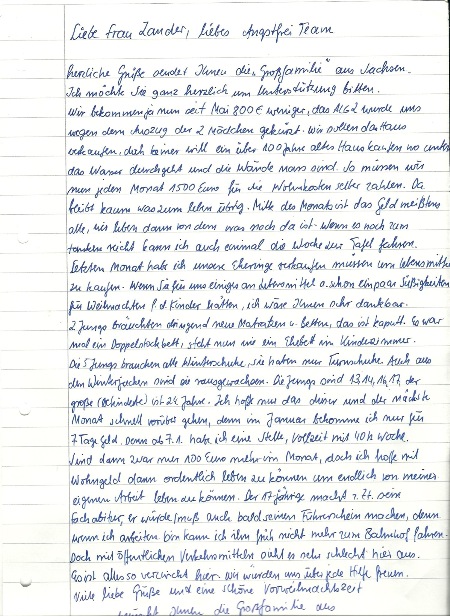 Liebe Frau Zander, liebes Angstfrei Team
herzliche Grüße sendet Ihnen die "Großfamilie" aus Sachsen.
Ich möchte Sie ganz herzlich um Unterstützung bitten.
Wir bekommen ja nun seit Mai 800 € weniger, das ALG 2 wurde uns
wegen dem Auszug der 2 Mädchen gekürzt. Wir sollen das Haus
verkaufen, doch keiner will ein über 100 Jahre altes Haus kaufen wo unten
das Wasser durchgeht und die Wände nass sind. So müssen wir
nun jeden Monat 1500 Euro für die Wohnkosten selber zahlen. Da
bleibt kaum was zum leben übrig. Mitte des Monats ist das Geld meistens
alle, wir leben dann von dem was noch da ist. Wenn es noch zum
tanken reicht kann ich auch einmal die Woche zur Tafel fahren.
Letzten Monat hab ich unsere Eheringe verkaufen müssen um Lebensmittel
zu kaufen. Wenn Sie für uns einiges an Lebensmittel u. schon ein paar Süßigkeiten
für Weihnachten f. d. Kinder hätten, ich wäre Ihnen sehr dankbar.
2 Jungs bräuchten dringend neue Matratzen u. Betten, das ist kaputt. Es war
mal ein Doppelstockbett, steht nun wie ein Ehebett im Kinderzimmer.
Die 5 Jungs brauchen alle Winterschuhe, sie haben nur Turnschuhe. Auch aus
den Winterjacken sind sie rausgewachsen. Die Jungs sind 13, 14, 16, 17, der
große (Behinderte) ist 24 Jahre. Ich hoffe nur das dieser und der nächste
Monat schnell vorüber gehen, denn im Januar bekomme ich nur für
7 Tage Geld. Denn ab 7.1. habe ich eine Stelle, Vollzeit mit 40 h Woche.
Sind dann zwar nur 100 Euro mehr im Monat, doch ich hoffe mit
Wohngeld dann ordentlich leben zu können um endlich von meiner
eigenen Arbeit leben zu können. Der 17 jährige macht z. Zt. sein
Fachabitur, er würde/muß auch bald seinen Führerschein machen, denn
wenn ich arbeiten bin kann ich ihn früh nicht mehr zum Bahnhof fahren.
Doch mit öffentlichen Verkehrsmitteln sieht es sehr schlecht hier aus.
Es ist alles so verzwickt hier. Wir würden uns über jede Hilfe freuen.
Viele liebe Grüße und eine schöne Vorweihnachtszeit
wünscht Ihnen die Großfamilie aus